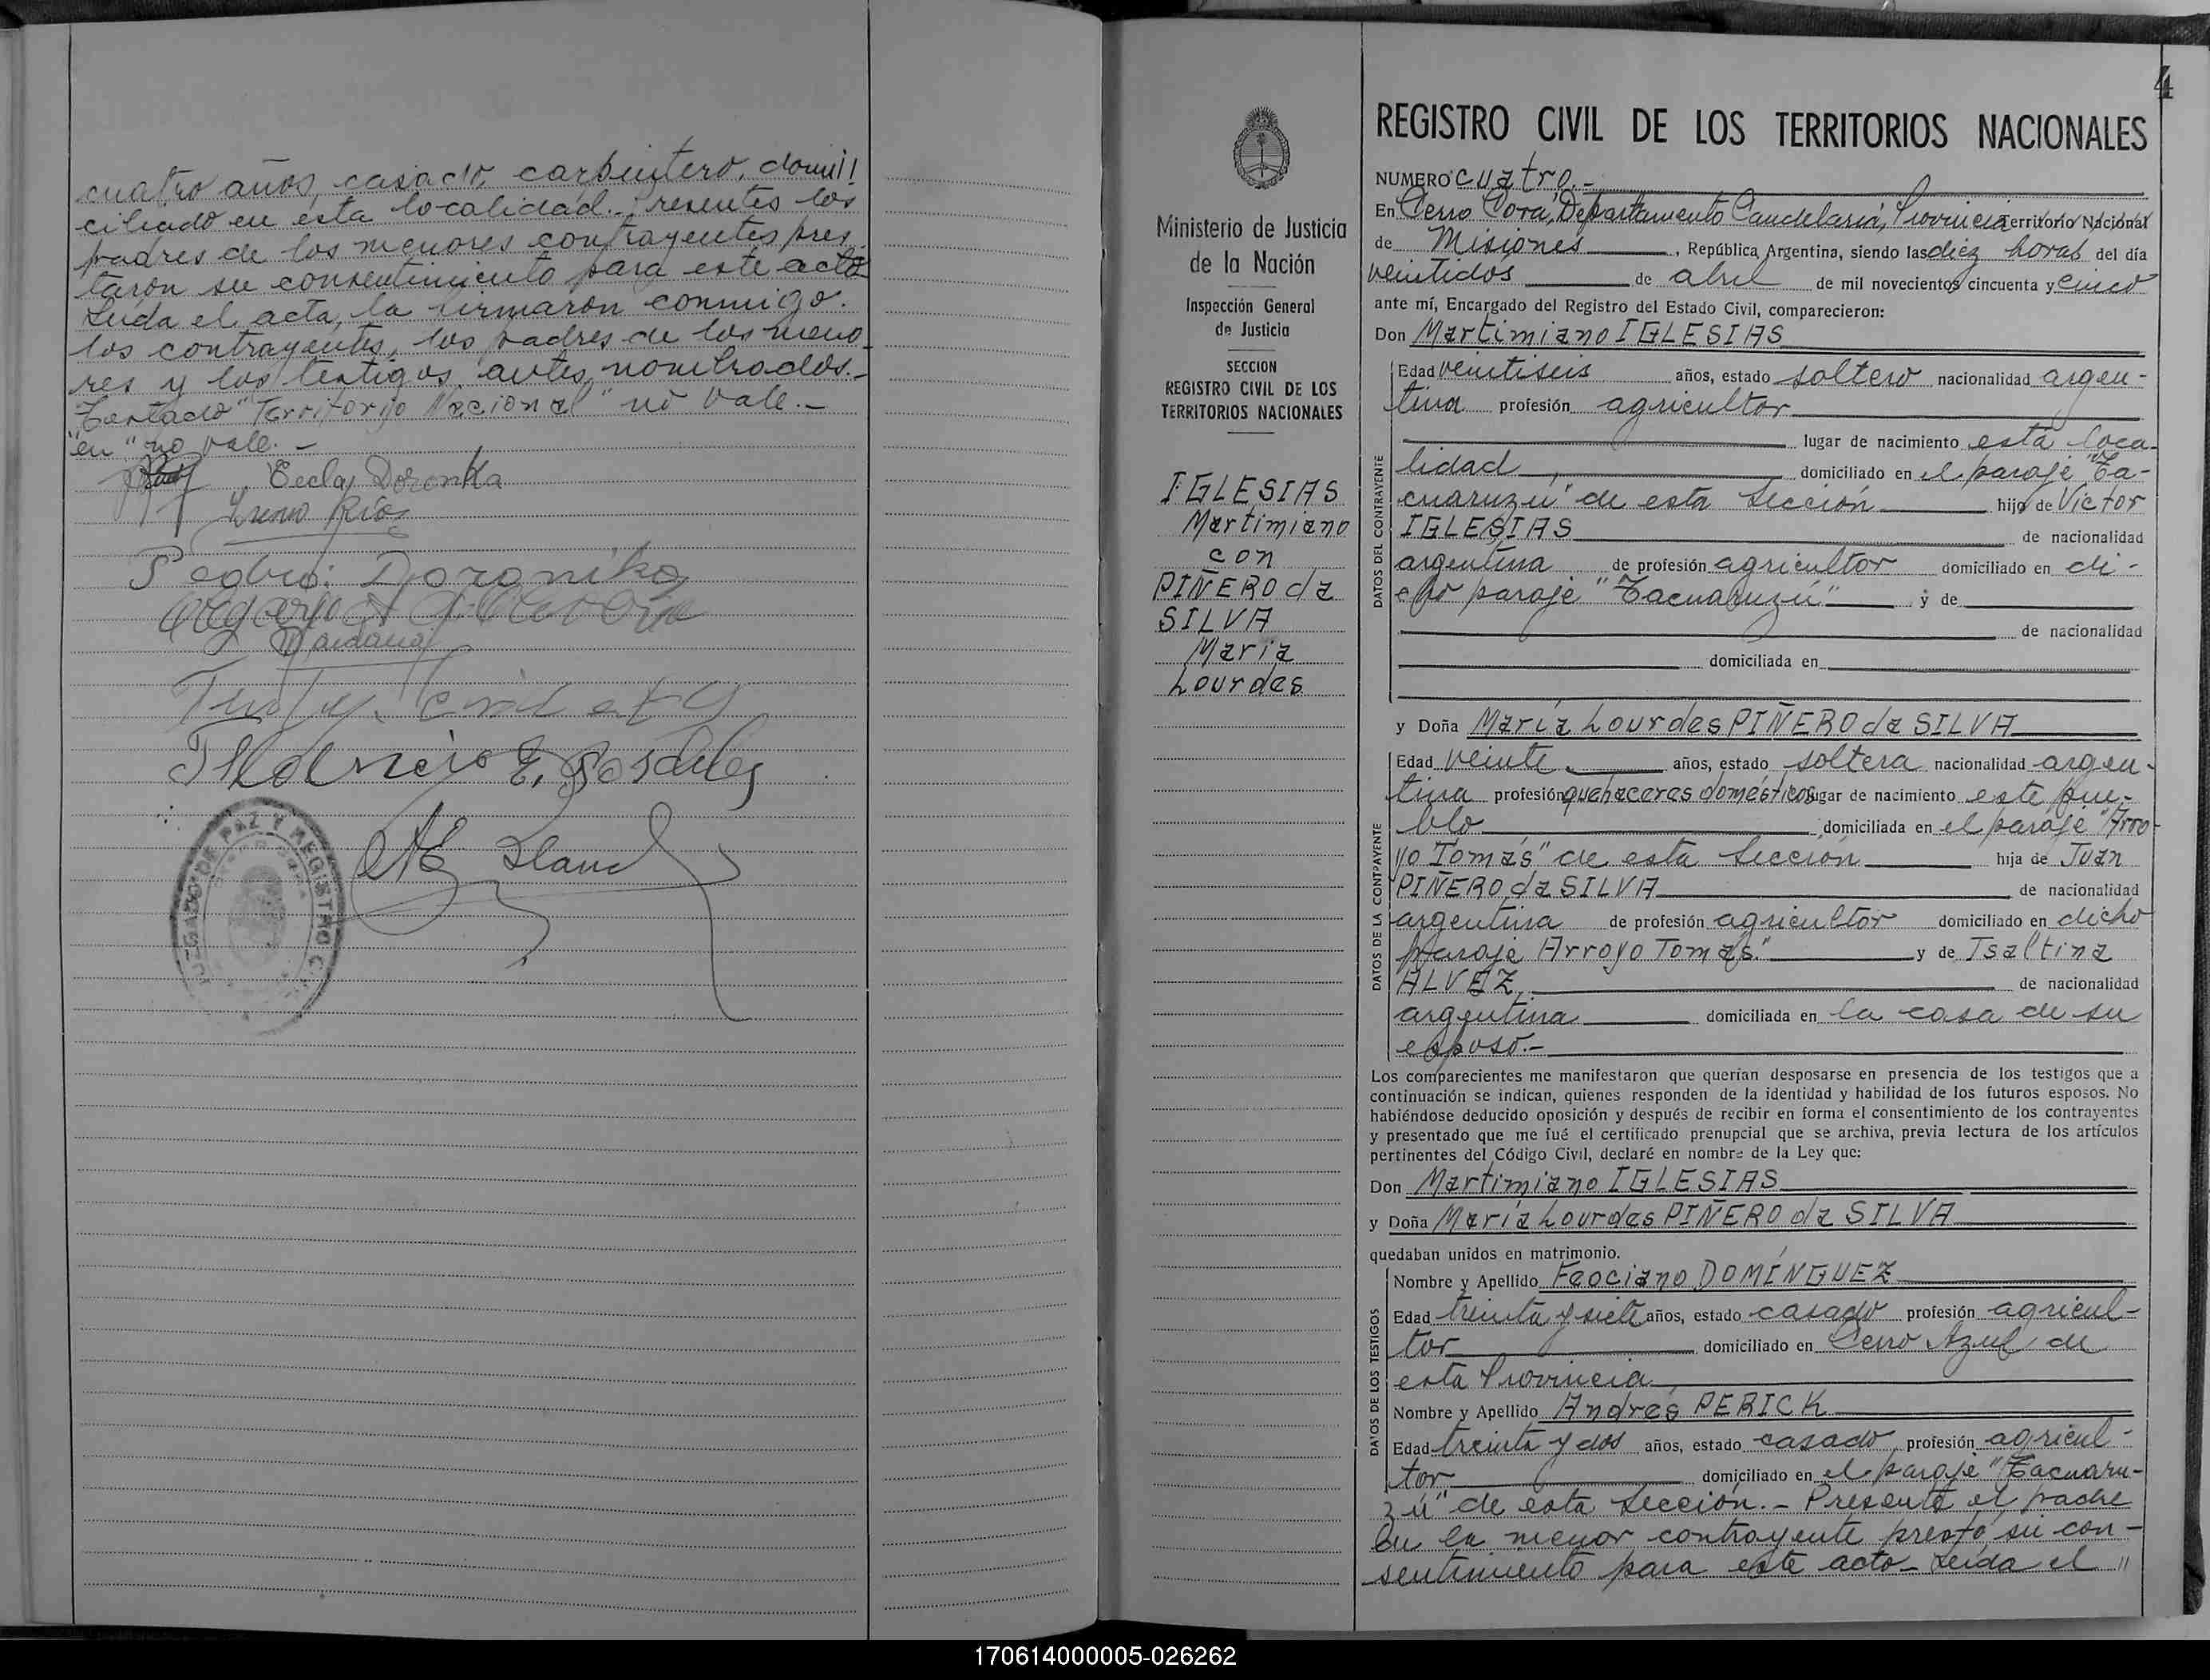 cuatro años, casado, carpintero, domi!!
ciliado en ésta localidad.- Presentes los
padres de los menores contrayentes pres
taron su consentimiento para este acto
Leída el acta, la firmaron conmigo.
los contrayentes, los padres de los meno_
res y los testigos antes nombrados.-
Testado "Territorio Nacional" no vale.-
"en" no vale.-
Tecla Doronka
Pedro
Florencio E. Rosales
JUZGADO DE PAZ Y REGISTRO C
4
REGISTRO CIVIL DE LOS TERRITORIOS NACIONALES
NUMERO cuatro.-
En Cerro Corá, Departamento Candelaria, Provincia Territorio Nacional
de Misiones, República Argentina, siendo las diez horas del día
veintidos de abril de mil novecientos cincuenta y cinco
ante mí, Encargado del Registro del Estado Civil, comparecieron:
Don Martimiano IGLESIAS
Ministerio de Justicia
de la Nación
Inspección General
de Justicia
SECCION
REGISTRO CIVIL DE LOS
TERRITORIOS NACIONALES
IGLESIAS
Martimiano
con
PIÑERO da
SILVA
María
Lourdes
DATOS DEL CONTRAYENTE
Edad veintiseis años, estado soltero nacionalidad argen-
tina profesión agricultor
lugar de nacimiento esta loca-
lidad, domiciliado en el paraje "Ta-
cuaruzú" de esta Sección hijo de Víctor
IGLESIAS de nacionalidad
argentina de profesión agricultor domiciliado en di-
cho paraje "Tacuaruzú" y de
de nacionalidad
domiciliada en
y Doña María Lourdes PIÑERO da SILVA
DATOS DE LA CONTRAYENTE
Edad veinte años, estado soltera nacionalidad argen-
tina profesión quehaceres domésticos lugar de nacimiento este pue-
blo domiciliada en el paraje "Arro-
yo Tomás" de esta Sección hija de Juan
PIÑERO da SILVA de nacionalidad
argentina de profesión agricultor domiciliado en dicho
paraje Arroyo Tomás" y de Isaltina
ALVEZ de nacionalidad
argentina domiciliada en la casa de su
esposo.-
Los comparecientes me manifestaron que querían desposarse en presencia de los testigos que a
continuación se indican, quienes responden de la identidad y habilidad de los futuros esposos. No
habiéndose deducido oposición y después de recibir en forma el consentimiento de los contrayentes
y presentado que me fué el certificado prenupcial que se archiva, previa lectura de los artículos
pertinentes del Código Civil, declaré en nombre de la Ley que:
Don Martimiano IGLESIAS
y Doña María Lourdes PIÑERO da SILVA
quedaban unidos en matrimonio.
DATOS DE LOS TESTIGOS
Nombre y Apellido Feociano DOMÍNGUEZ
Edad treinta y siete años, estado casado profesión agricul-
tor domiciliado en Cerro Azul de
esta Provincia
Nombre y Apellido Andrés PERICK
Edad treinta y dos años, estado casado profesión agricul-
tor domiciliado en el paraje "Tacuaru-
zú" de esta Sección.- Presente el padre
de la menor contrayente prestó su con-
sentimiento para este acto- Leída el "
170614000005-026262